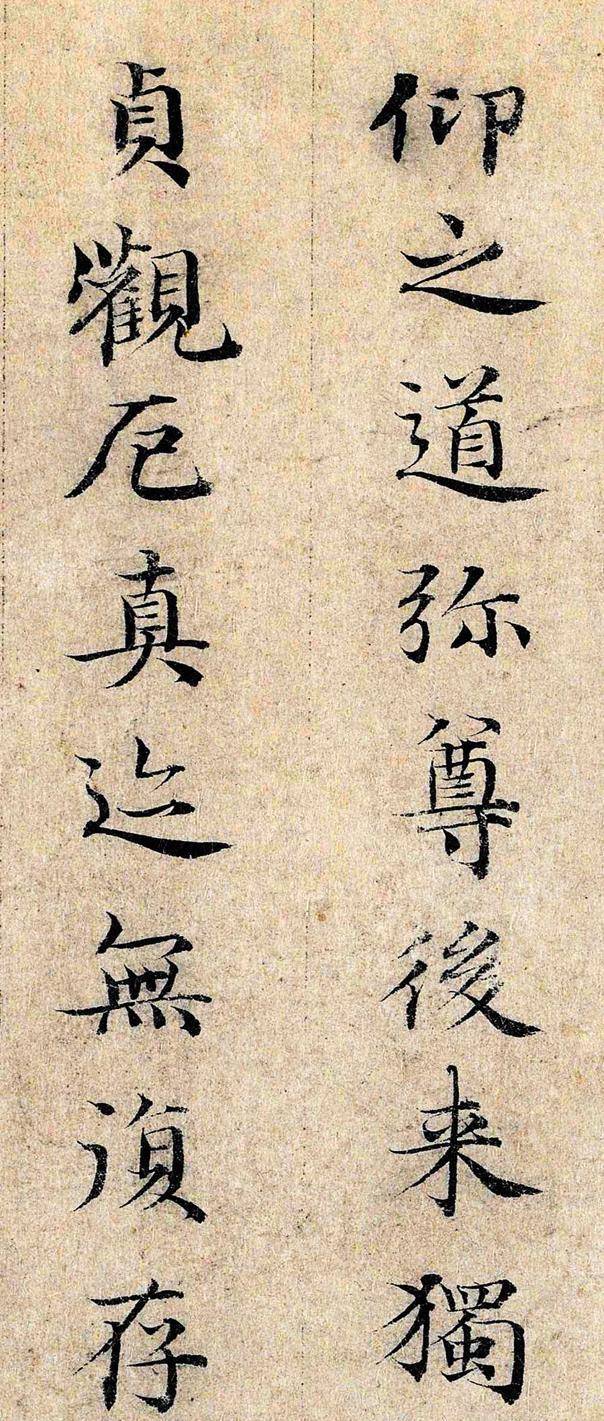 仰之道弥尊後来獨
貞觀厄真迹無復存